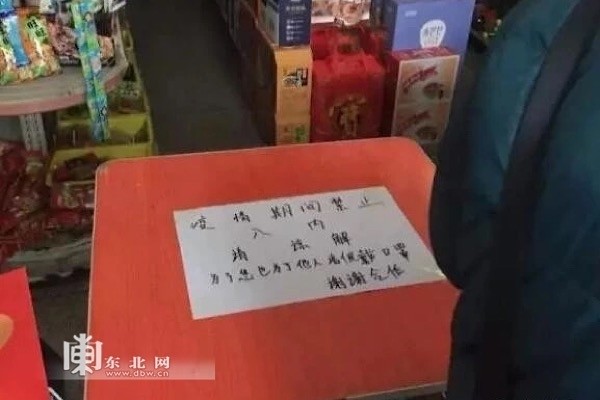 疫情期间禁止
入内
请谅解
为了您也为了他人请佩戴口罩
谢谢合作
东北网
www.dbw.cn